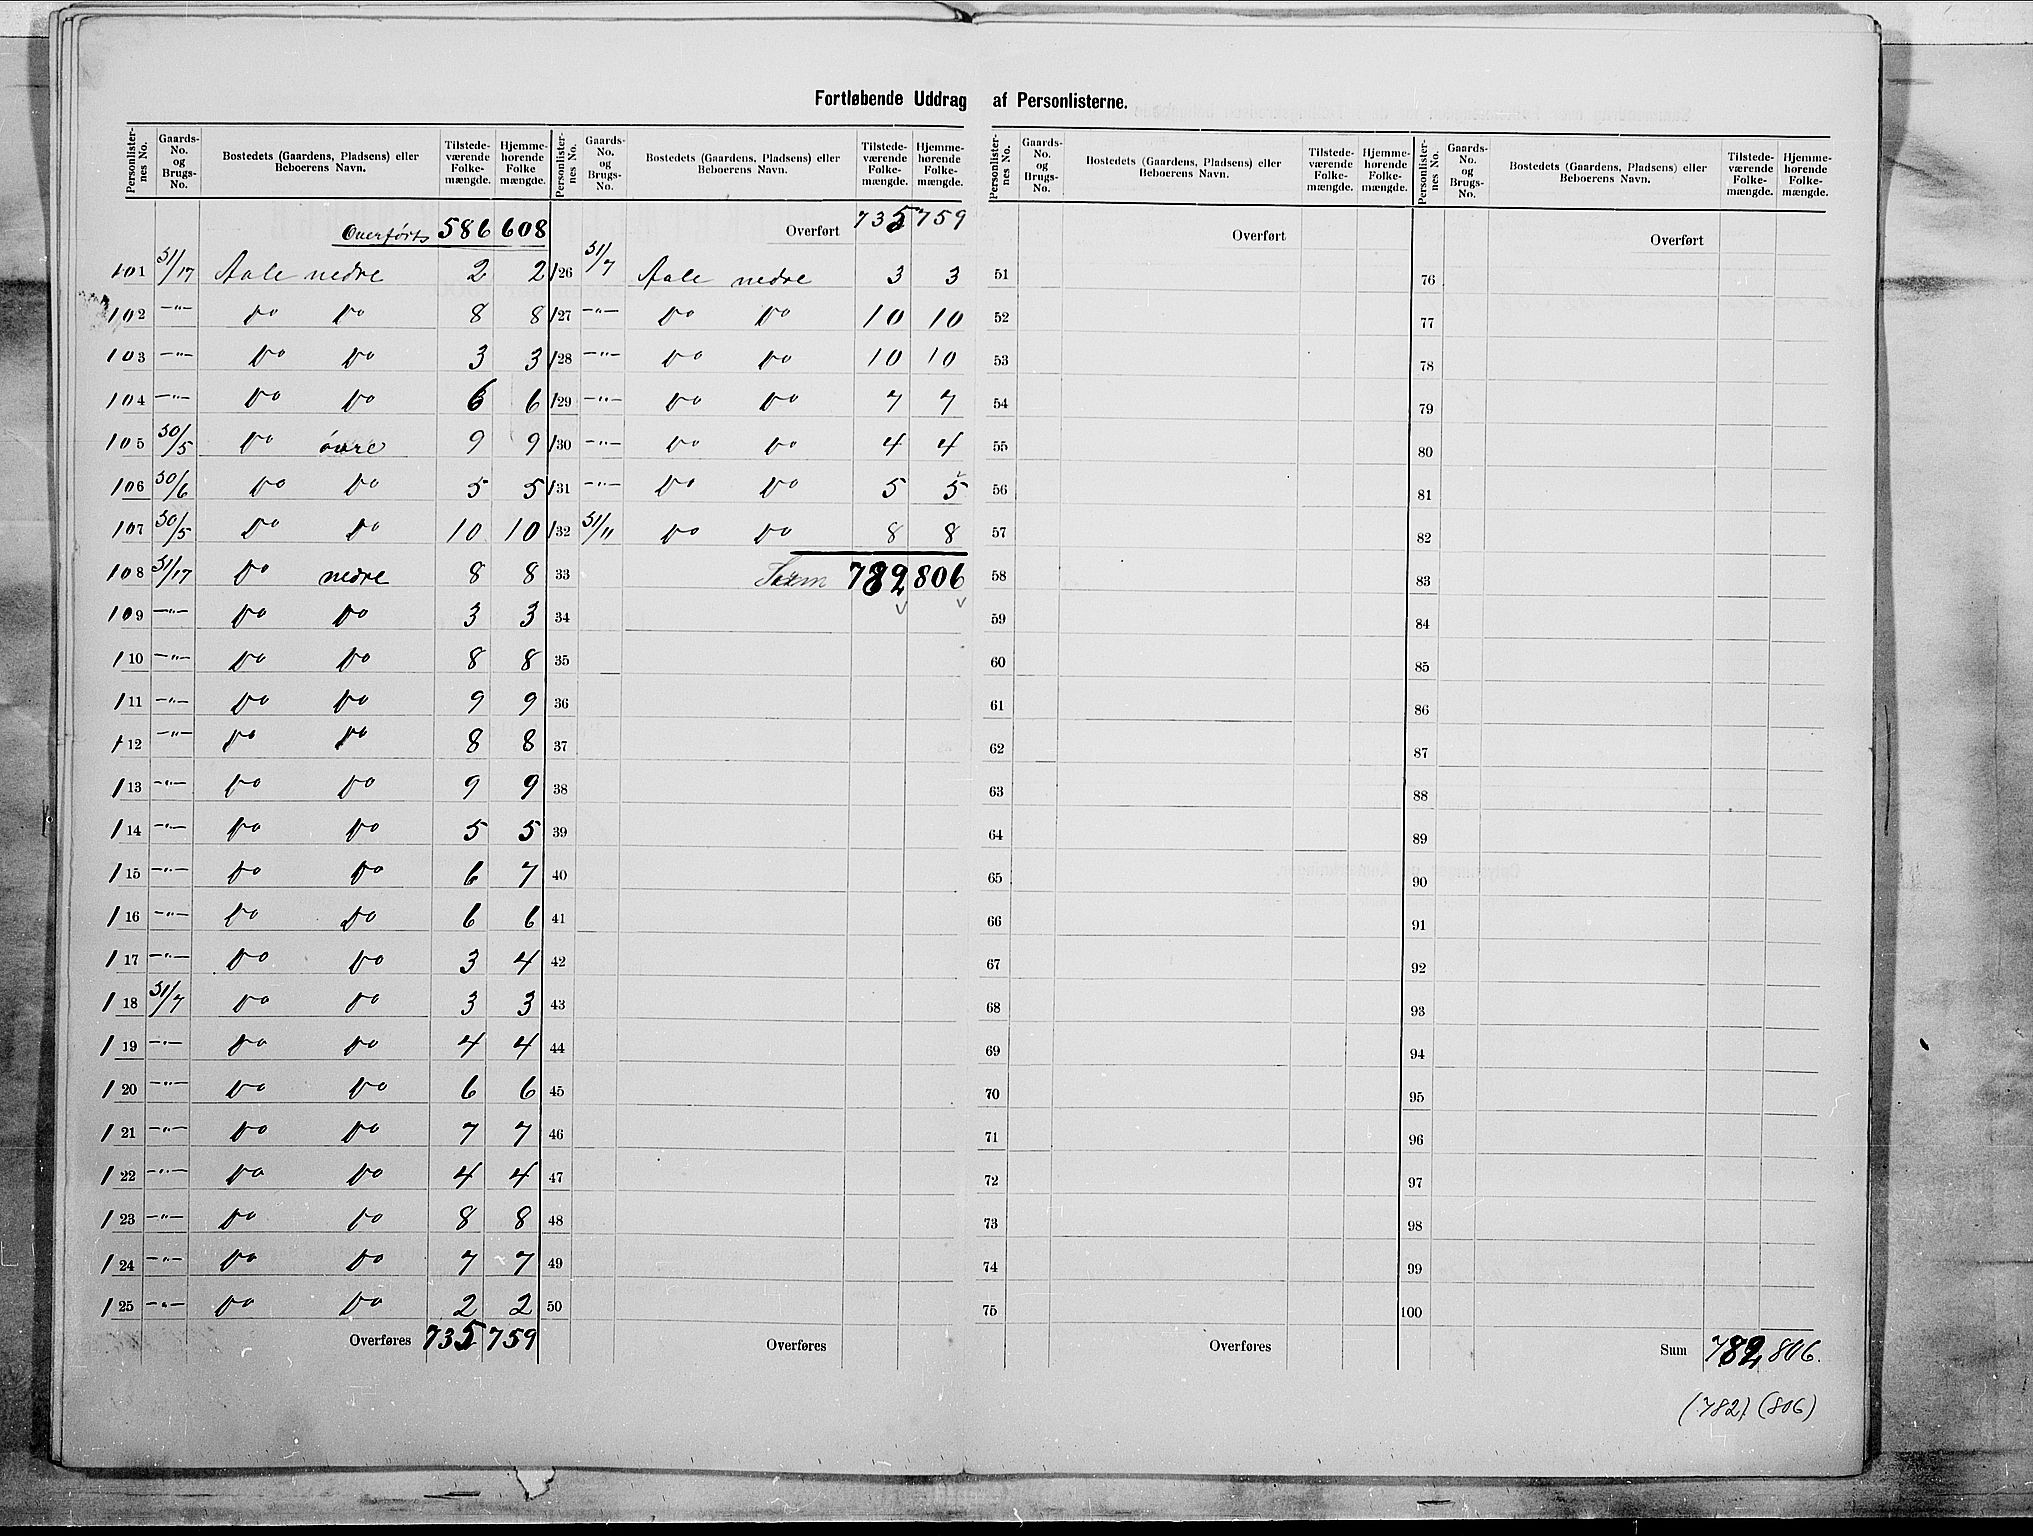 Fortløbende Uddrag af Personlisterne.
Personlister-nes No. | Gaards-No. og Brugs-No. | Bostedets (Gaardens, Pladsens) eller Beboerens Navn. | Tilstede-værende Folke-mængde. | Hjemme-hørende Folke mængde.
Overførts 586 608
101 51/17 Aale nedre 2 2
102 —"— Do Do 8 8
103 —"— Do Do 3 3
104 —"— Do Do 6 6
105 50/5 Do övre 9 9
106 50/6 Do Do 5 5
107 50/5 Do Do 10 10
108 51/17 Do nedre 8 8
109 —"— Do Do 3 3
110 —"— Do Do 8 8
111 —"— Do Do 9 9
112 —"— Do Do 8 8
113 —"— Do Do 9 9
114 —"— Do Do 5 5
115 —"— Do Do 6 7
116 —"— Do Do 6 6
117 —"— Do Do 3 4
118 51/7 Do Do 3 3
119 —"— Do Do 4 4
120 —"— Do Do 6 6
121 —"— Do Do 7 7
122 —"— Do Do 4 4
123 —"— Do Do 8 8
124 —"— Do Do 7 7
125 —"— Do Do 2 2
Overføres 735 759
Personlister-nes No. | Gaards-No. og Brugs-No. | Bostedets (Gaardens, Pladsens) eller Beboerens Navn. | Tilstede-værende Folke-mængde. | Hjemme-hørende Folke-mængde.
Overført 735 759
126 51/7 Aale nedre 3 3
127 —"— Do Do 10 10
128 —"— Do Do 10 10
129 —"— Do Do 7 7
130 —"— Do Do 4 4
131 —"— Do Do 5 5
132 51/11 Do Do 8 8
33 Sum 782 806
34
35
36
37
38
39
40
41
42
43
44
45
46
47
48
49
50
Overføres
Personlister-nes No. | Gaards-No. og Brugs-No. | Bostedets (Gaardens, Pladsens) eller Beboerens Navn. | Tilstede-værende Folke-mængde. | Hjemme-hørende Folke-mængde.
Overført
51
52
53
54
55
56
57
58
59
60
61
62
63
64
65
66
67
68
69
70
71
72
73
74
75
Overføres
Personlister-nes No. | Gaards-No. og Brugs-No. | Bostedets (Gaardens, Pladsens) eller Beboerens Navn. | Tilstede-værende Folke-mængde. | Hjemme-hørende Folke-mængde.
Overført
76
77
78
79
80
81
82
83
84
85
86
87
88
89
90
91
92
93
94
95
96
97
98
99
100
Sum 782 806.
(782) (806)